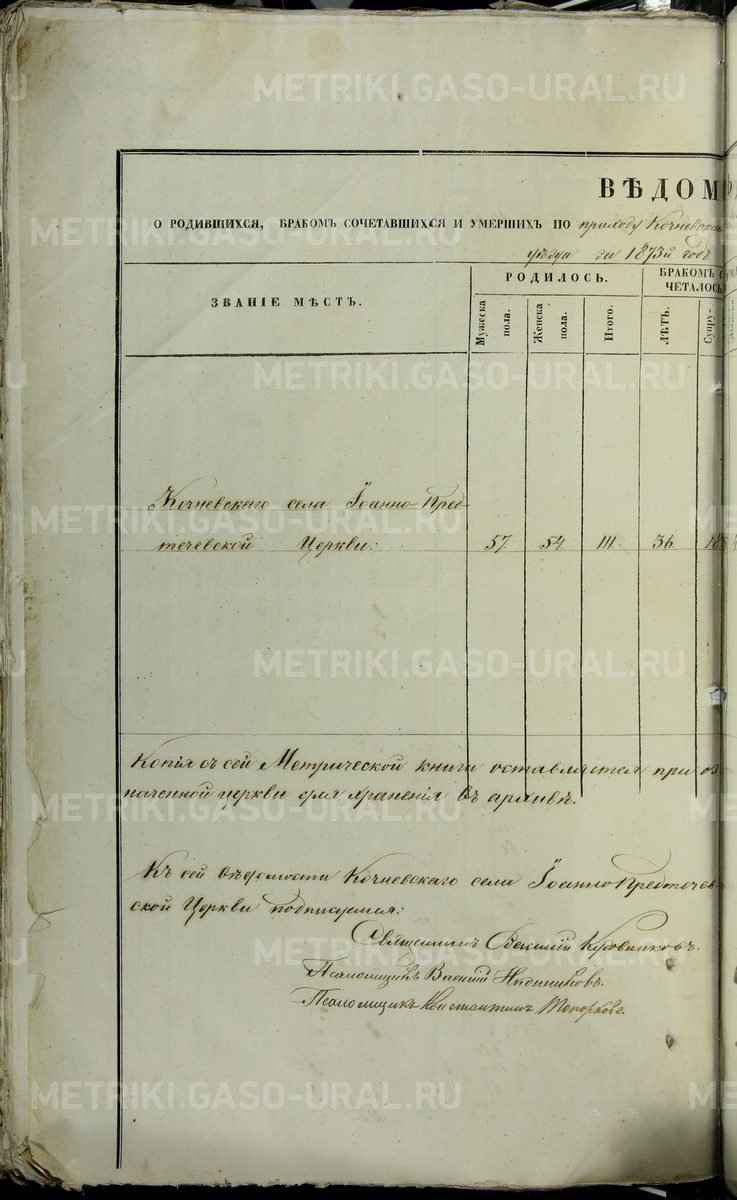 ВѢДОМ
О РОДИВШИХСЯ, БРАКОМЪ СОЧЕТАВШИХСЯ И УМЕРШИХЪ ПО приходу Кочневска
уѣзда за 1873й годъ
ЗВАНІЕ МѢСТЪ.
РОДИЛОСЬ.
БРАКОМЪ С
ЧЕТАЛОСЬ
Мужеска пола.
Женска пола.
Итого.
ЛѢТЪ.
Супру-
Кочневскаго села Іоанно-Пред-
течевской Церкви: 57. 54. 111. 36.
Копія съ сей Метрической книги оставляется при оз
наченной церкви для храненія въ архивѣ.
Къ сей вѣдомости Кочневскаго села Іоанно Предтечев-
ской Церкви подписуемся:
Священникъ Василій
Псаломщикъ Василій
Псаломщикъ Константинъ Топорковъ.
METRIKI.GASO-URAL.RU
METRIKI.GASO-URAL.RU
METRIKI.GASO-URAL.RU
METRIKI.GASO-URAL.RU
METRIKI.GASO-URAL.RU
METRIKI.GASO-URAL.RU
METRIKI.GASO-URAL.RU
METRIKI.GASO-URAL.RU